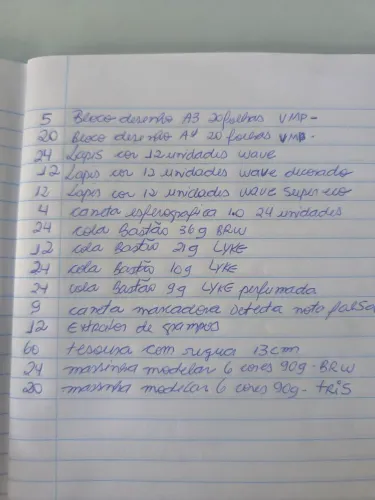 5 Bloco desenho A3 20 folhas VMP-
20 Bloco desenho A4 20 folhas VMP.
24 Lapis cor 12 unidades wave
12 Lapis cor 12 unidades wave decorado
12 Lapis cor 12 unidades wave super eco
4 caneta esferografica 1.0 24 unidades
24 cola Bastão 36g BRW
12 cola Bastão 21g LYKE
24 cola Bastão 10g LYKE
24 cola Bastão 9g LYKE perfumada
9 caneta marcadora detecta nota falsa
12 Extrator de grampos
60 tesoura com regua 13cm
24 massinha modelar 6 cores 90g - BRW
20 massinha modelar 6 cores 90g - tris